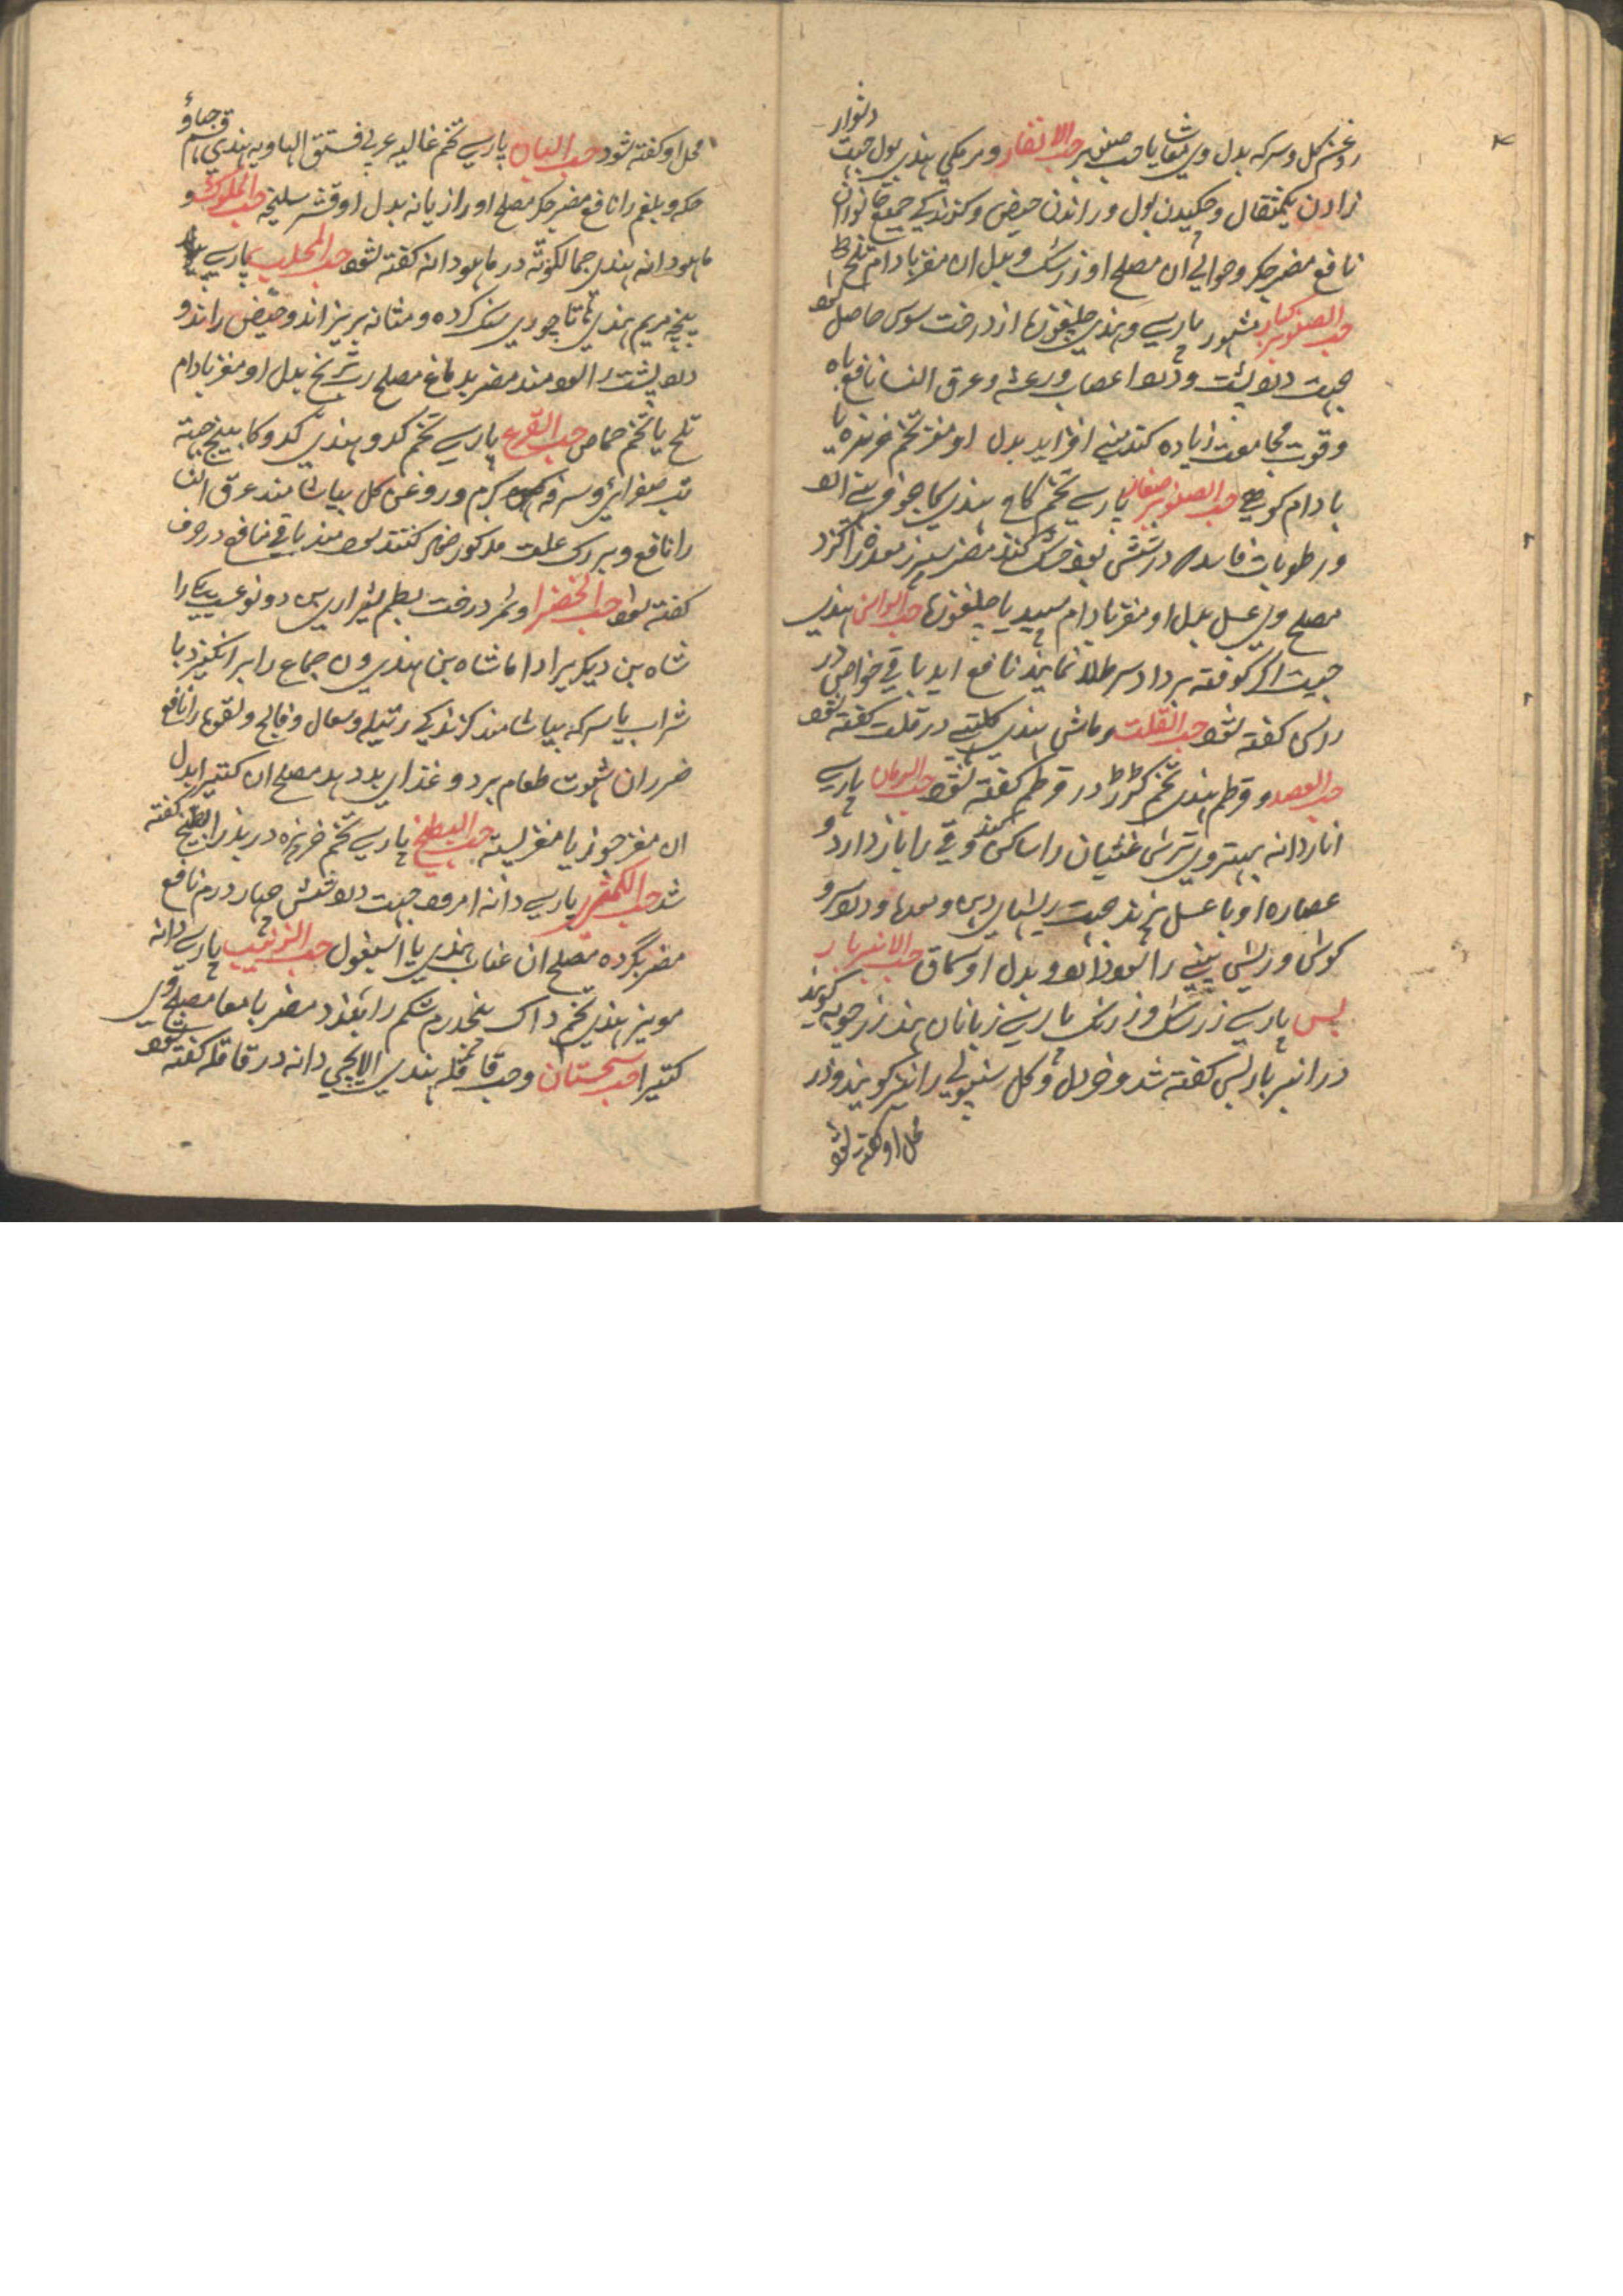 روغن گل و سرکه بدل وی حب صنوبر حب الانفار و برمکی هندی بول جهت
دشوار
زادن یکمثقال و چکیدن بول و راندن حیض و کزندکی جمیع جانوران
نافع مضر جکر و حوالی ان مصلح او زرشک و بدل ان مغز بادام تلخ
حب الصنوبر کبار مشهور پارسی و هندی چلغوزها از درخت سوس حاصل شود
جهت درد پشت و درد اعصاب و رعشه و عرق النسا نافع باه
و قوت مجامعت زیاده کند منی افزاید بدل او مغز تخم خربزه یا
بادام کوهی حب الصنوبر صغار پارسی تخم کاج هندی
و رطوبات فاسده در شش بود خشک کند مضر سپرز معده را کزد
مصلح وی عسل بدل او مغز بادام سپید یا چلغوزها حب الراس هندی
جهت اکر کوفته بر داد سر طلا نمایند نافع اید باقی خواص در
راس کفته شود حب القلت و ماش هندی کلتهی در قلت کفته شود
حب العصفر و قرطم هندی تخم کرر در قرطم کفته شود حب الرمان پارسی
اناردانه بهتر وی ترش غشیان را ساکن کند و قی را باز دارد و
عصاره او با عسل پزند جهت ریشهای دهن و معدها و درد سر و
کوش و ریش بینی را سود دارد و بدل او سماق حب الانبربار
یس پارسی زرشک و زرنک پارسی زبانان هند زرجوبه کویند
در انبرباریس کفته شد و خردل و کل سنبولی را نیز کویند و در
محل او کفته شود
محل او کفته شود حب البان پارسی تخم غالیه عربی فستق الهاویه هندی قسم جهاؤ
حکه و بلغم را نافع مضر جکر مصلح او رازیانه بدل او قشر سلیخه حب الملوک و
ماهودانه هندی جمالکوته در ماهودانه کفته شود حب المحلب پارسی
پنجه مریم هندی هاتاجوری سنک کرده و مثانه بریزاند و حیض راند و
درد پشت را سودمند مضر بدماغ مصلح بدل او مغز بادام
تلخ یا تخم حماض حب القرع پارسی تخم کدو هندی کدو کا بیج جهته
تب صفرائی و سرفه کرم و روغن کل بیاشامند عرق النسا
را نافع و بر رک علت مذکور ضماد کنند سودمند باقی منافع در حرف
کفته شود حب الخضرا و ثمر درخت بطم شیرازی بن دو نوعست یکی را
شاه بن دیکر یرا داماشاه بن هندی ون جماع را برانکیزد با
شراب یا سرکه بیاشامند کزندکی رتیلا و سعال و فالج و لقوه را نافع
ضرر ان شهوت طعام برد و غذای بد دهد مصلح ان کتیرا بدل
ان مغز جوز یا مغز پسته حب البطیخ پارسی تخم خربزه در بذر البطیخ کفته
شد حب الکمثری پارسی دانه امرود جهت درد شش چهار درم نافع
مضر بکرده مصلح ان عناب هندی یا اسبغول حب الزبیب پارسی دانه
مویز هندی تخم داک پنجدرم شکم را ببندد مضر بامعا مصلح وی
کتیرا حب سجستان و حب قاقله هندی الایچی دانه در قاقله کفته شود